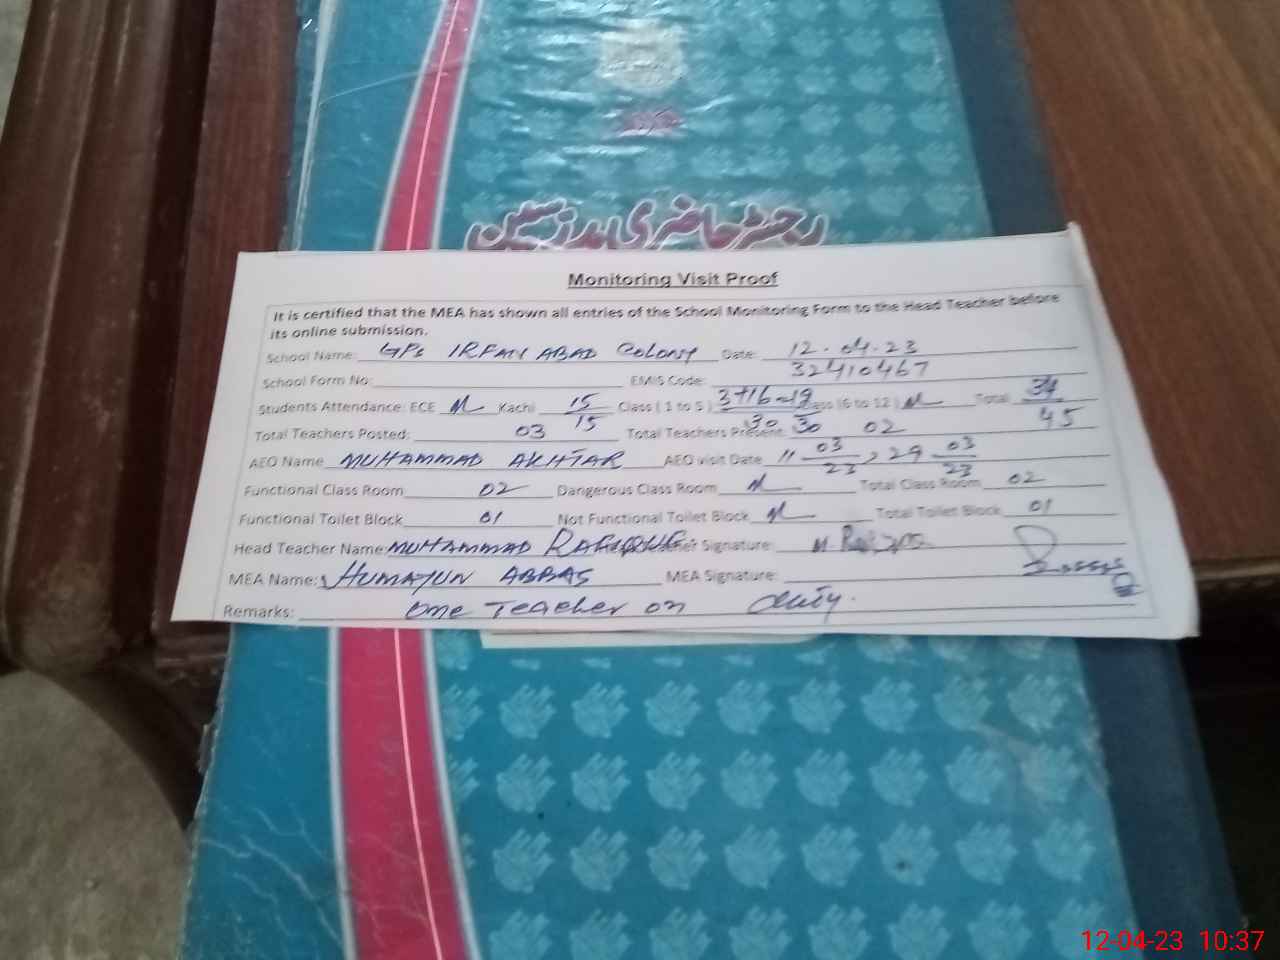 رجسٹر حاضری مدرسین
Monitoring Visit Proof
It is certified that the MEA has shown all entries of the School Monitoring Form to the Head Teacher before
its online submission.
School Name: GPS IRFAN ABAD COLONY Date: 12.04.23
School Form No: EMIS Code: 32410467
Students Attendance: ECE Kachi 15/15 Class (1 to 5) 3+16=19/30 30 Class (6 to 12) Total 34/45
Total Teachers Posted: 03 Total Teachers Present: 02
AEO Name MUHAMMAD AKHTAR AEO visit Date 11 03/23, 29 03/23
Functional Class Room 02 Dangerous Class Room Total Class Room 02
Functional Toilet Block 01 Not Functional Toilet Block Total Toilet Block 01
Head Teacher Name: MUHAMMAD Signature:
MEA Name: HUMAYUN ABBAS MEA Signature:
Remarks: one Teacher on duty.
12-04-23 10:37